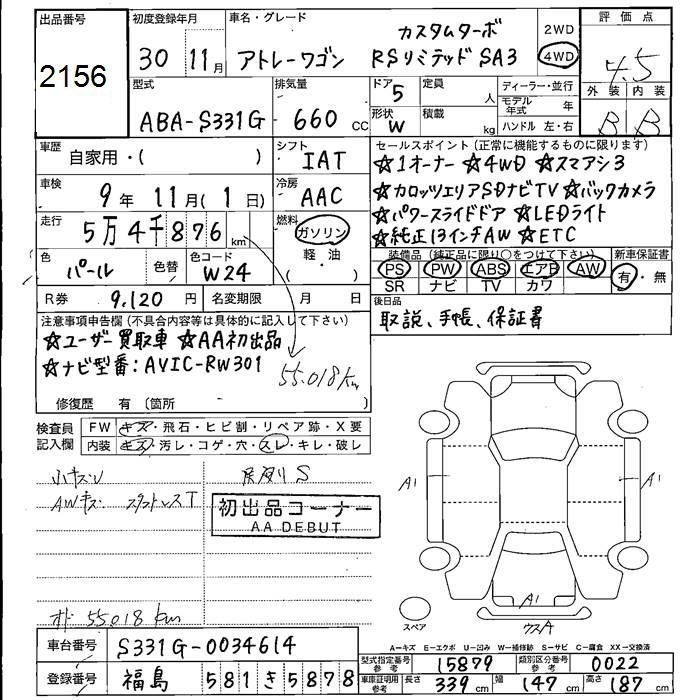 出品番号
2156
初度登録年月
30 11月
車名・グレード
アトレーワゴン
カスタムターボ
RSリミテッド SA3
2WD
4WD
評価点
4.5
外装 内装
B B
型式
ABA-S331G
排気量
660 cc
ドア
5
形状
W
定員
人
積載
kg
ディーラー・並行
モデル年式 年
ハンドル 左・右
車歴
自家用・( )
シフト
IAT
車検
9年 11月 (1日)
冷房
AAC
走行
5万4千876 km
燃料
ガソリン
軽・油
( )
色
パール
色替
色コード
W24
R券 9.120 円
名変期限 月 日
セールスポイント (正常に機能するものに限ります)
☆1オーナー ☆4WD ☆スマアシ3
☆カロッツェリアSDナビTV ☆バックカメラ
☆パワースライドドア ☆LEDライト
☆純正13インチAW ☆ETC
装備品 (純正品に限り○をつけて下さい)
PS PW ABS エアB AW
SR ナビ TV カワ
新車保証書
有・無
後日品
取説、手帳、保証書
注意事項申告欄 (不具合内容等は具体的に記入して下さい)
☆ユーザー買取車 ☆AA初出品
☆ナビ型番:AVIC-RW301
55.018km
修復歴 有 (箇所 )
検査員記入欄
FW キズ・飛石・ヒビ割・リペア跡・X要
内装 キズ・汚レ・コゲ・穴・スレ・キレ・破レ
小キズU
AWキズ スタットレスT
S
初出品コーナー
AA DEBUT
オド 55018km
A1
A1
A1
スペア
ウスA
A−キズ E−エクボ U−凹み W−補修跡 S−サビ C−腐食 XX−交換済
車台番号
S331G-0034614
登録番号
福島 581 き 5878
型式指定番号参考
15879
類別区分番号参考
0022
車車証明用参考
長さ 339 cm 幅 147 cm 高さ 187 cm